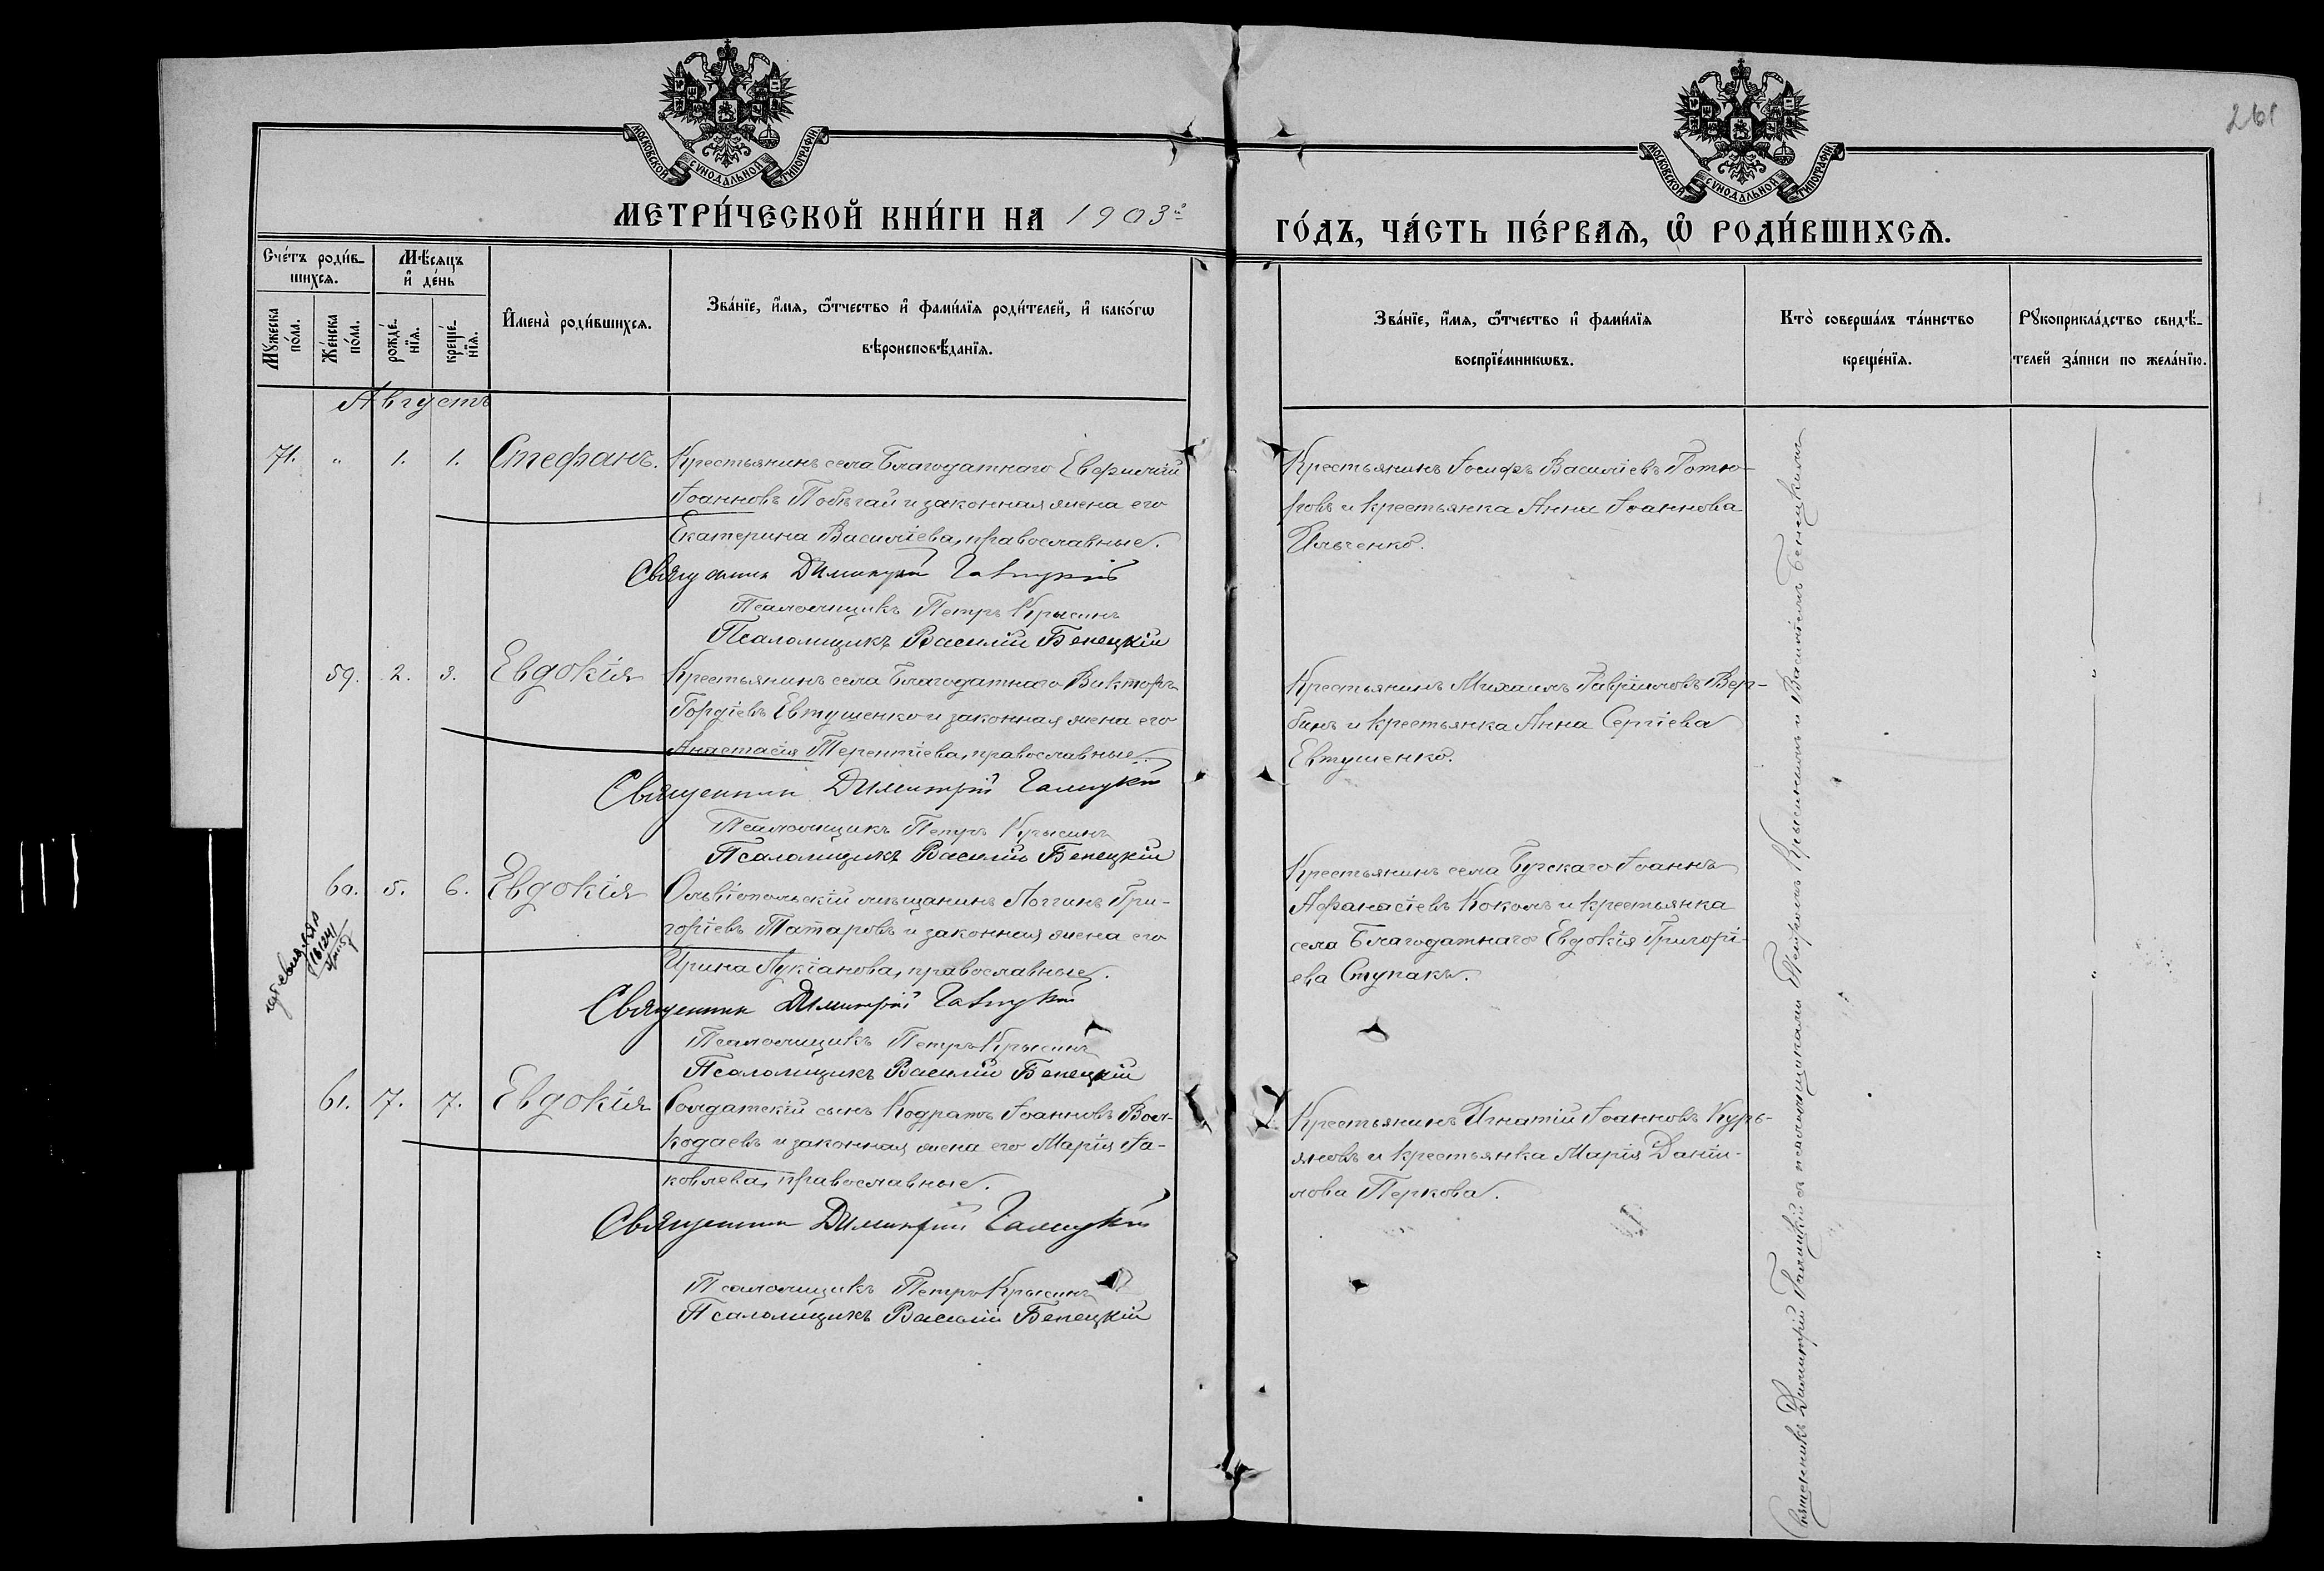 261
МОСКОВСКОЙ СѴНОДАЛЬНОЙ ТИПОГРАФІИ
МОСКОВСКОЙ СѴНОДАЛЬНОЙ ТИПОГРАФІИ
МЕТРИ́ЧЕСКОЙ КНИ́ГИ НА 1903й ГО́ДЪ, ЧА́СТЬ ПЕ́РВАѦ, Ѽ РОДИ́ВШИХСѦ.
Сче́тъ роди́в-
шихсѧ.
Мѣ́сѧцъ
и҆ де́нь
Мꙋ́жеска
по́ла.
Же́нска
по́ла.
рожде́-
нїѧ.
креще́-
нїѧ.
И҆мена̀ роди́вшихсѧ.
Зва́нїе, и҆́мѧ, ѻ҆́тчество и҆ фами́лїѧ роди́телей, и҆ како́гѡ
вѣроисповѣ́данїѧ.
Зва́нїе, и҆́мѧ, ѻ҆́тчество и҆ фами́лїѧ
воспрїе́мникѡвъ.
Кто̀ соверша́лъ та́инство
креще́нїѧ.
Рꙋкоприкла́дство свидѣ́-
телей за́писи по жела́нїю.
Августъ
71. " 1. 1. Стефанъ. Крестьянинъ села Благодатнаго Евфимій
Іоанновъ Побѣгай и законная жена его
Екатерина Василіева, православные.
Священник Димитрій Галицкій
Псаломщикъ Петръ Крысинъ
Псаломщикъ Василій Бенецкій
Крестьянинъ Іосифъ Василіевъ
и крестьянка Анна Іоаннова
Ильченко.
59. 2. 3. Евдокія Крестьянинъ села Благодатнаго Викторъ
Гордіевъ Евтушенко и законная жена его
Анастасія Терентіева, православные.
Священник Димитрій Галицкій
Псаломщикъ Петръ Крысинъ
Псаломщикъ Василій Бенецкій
Крестьянинъ Михаилъ Гавріиловъ Вер-
бинъ и крестьянка Анна Сергіева
Евтушенко.
"
60. 5. 6. Евдокія Ольвіопольскій мѣщанинъ Логгинъ Гри-
горіевъ Татаровъ и законная жена его
Ирина Лукіанова, православные.
Священник Димитрій Галицкій
Псаломщикъ Петръ Крысинъ
Псаломщикъ Василій Бенецкій
Крестьянинъ села Бурскаго Іоаннъ
Афанасіевъ Коколъ и крестьянка
села Благодатнаго Евдокія Григорі-
ева Ступакъ.
"
61. 7. 7. Евдокія Солдатскій сынъ Кодратъ Іоанновъ Вол-
кодаевъ и законная жена его Марія Іа-
ковлева, православные.
Священник Димитрій Галицкій
Псаломщикъ Петръ Крысинъ
Псаломщикъ Василій Бенецкій
Крестьянинъ Игнатій Іоанновъ Курь-
яновъ и крестьянка Марія Даніи-
лова Перкова.
"
Священникъ Димитрій Галицкій съ псаломщиками Петромъ Крысинымъ и Василіемъ Бенецкимъ